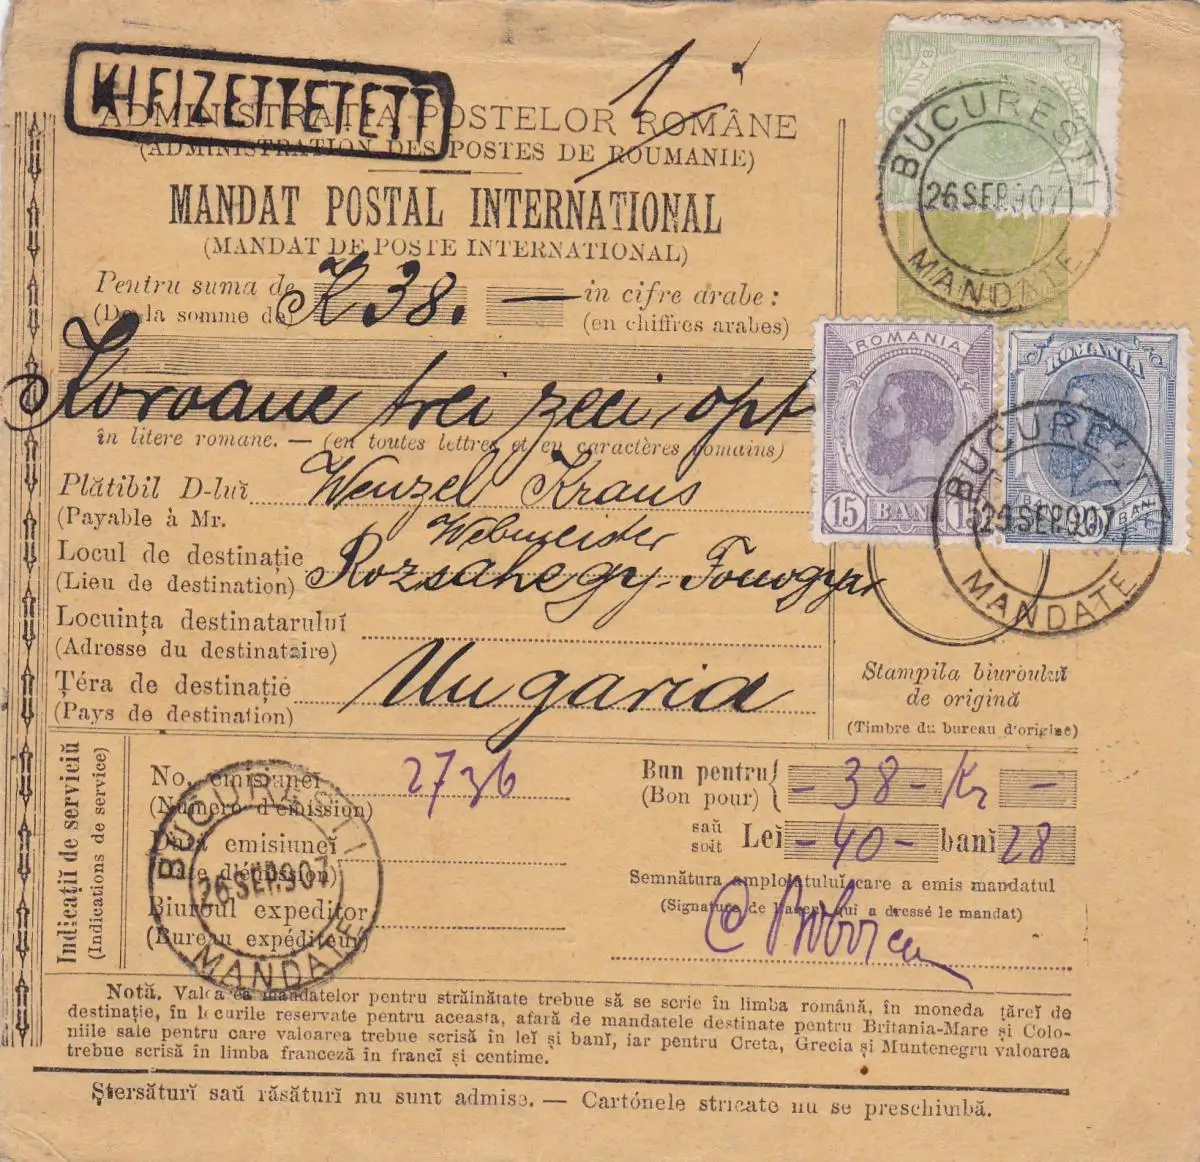 KIFIZETTETETT
1
ADMINISTRAȚIA POSTELOR ROMÂNE
(ADMINISTRATION DES POSTES DE ROUMANIE)
MANDAT POSTAL INTERNATIONAL
(MANDAT DE POSTE INTERNATIONAL)
Pentru suma de K 38. — in cifre arabe:
(De la somme de (en chiffres arabes)
Koroane trei zeci opt
în litere romane. — (en toutes lettres et en caractères romains)
Plătibil D-luĭ Wenzel Kraus
(Payable à Mr. Webmeister
Locul de destinație Rozsahegy-Fonogyar
(Lieu de destination)
Locuința destinataruluĭ
(Adresse du destinataire)
Țéra de destinație Ungaria
(Pays de destination)
BUCURESTI
26 SEP. 907
MANDATE
ROMANIA
15 BANI 15
ROMANIA
BANI
BUCURESTI
SEP. 907
MANDATE
Stampila biurouluĭ
de origină
(Timbre du bureau d'origine)
Indicațiĭ de serviciŭ
(Indications de service)
No. emisiuneĭ 2736
(Numéro d'émission)
Data emisiuneĭ
(Date d'émission)
Biuroul expeditor
(Bureau expéditeur)
BUCURESTI
26 SEP. 907
MANDATE
Bun pentru - 38 - Kr -
(Bon pour)
saŭ
soit Leĭ - 40 - banĭ 28
Semnătura amploiatuluĭ care a emis mandatul
(Signature de l'agent qui a dressé le mandat)
Notă. Valórea mandatelor pentru străinătate trebue să se scrie în limba română, în moneda țăreĭ de
destinație, în locurile reservate pentru aceasta, afară de mandatele destinate pentru Britania-Mare și Colo-
niile sale pentru care valoarea trebue scrisă în leĭ și banĭ, iar pentru Creta, Grecia și Muntenegru valoarea
trebue scrisă în limba franceză în francĭ și centime.
Ștersăturĭ saŭ răsăturĭ nu sunt admise. — Cartónele stricate nu se preschimbă.